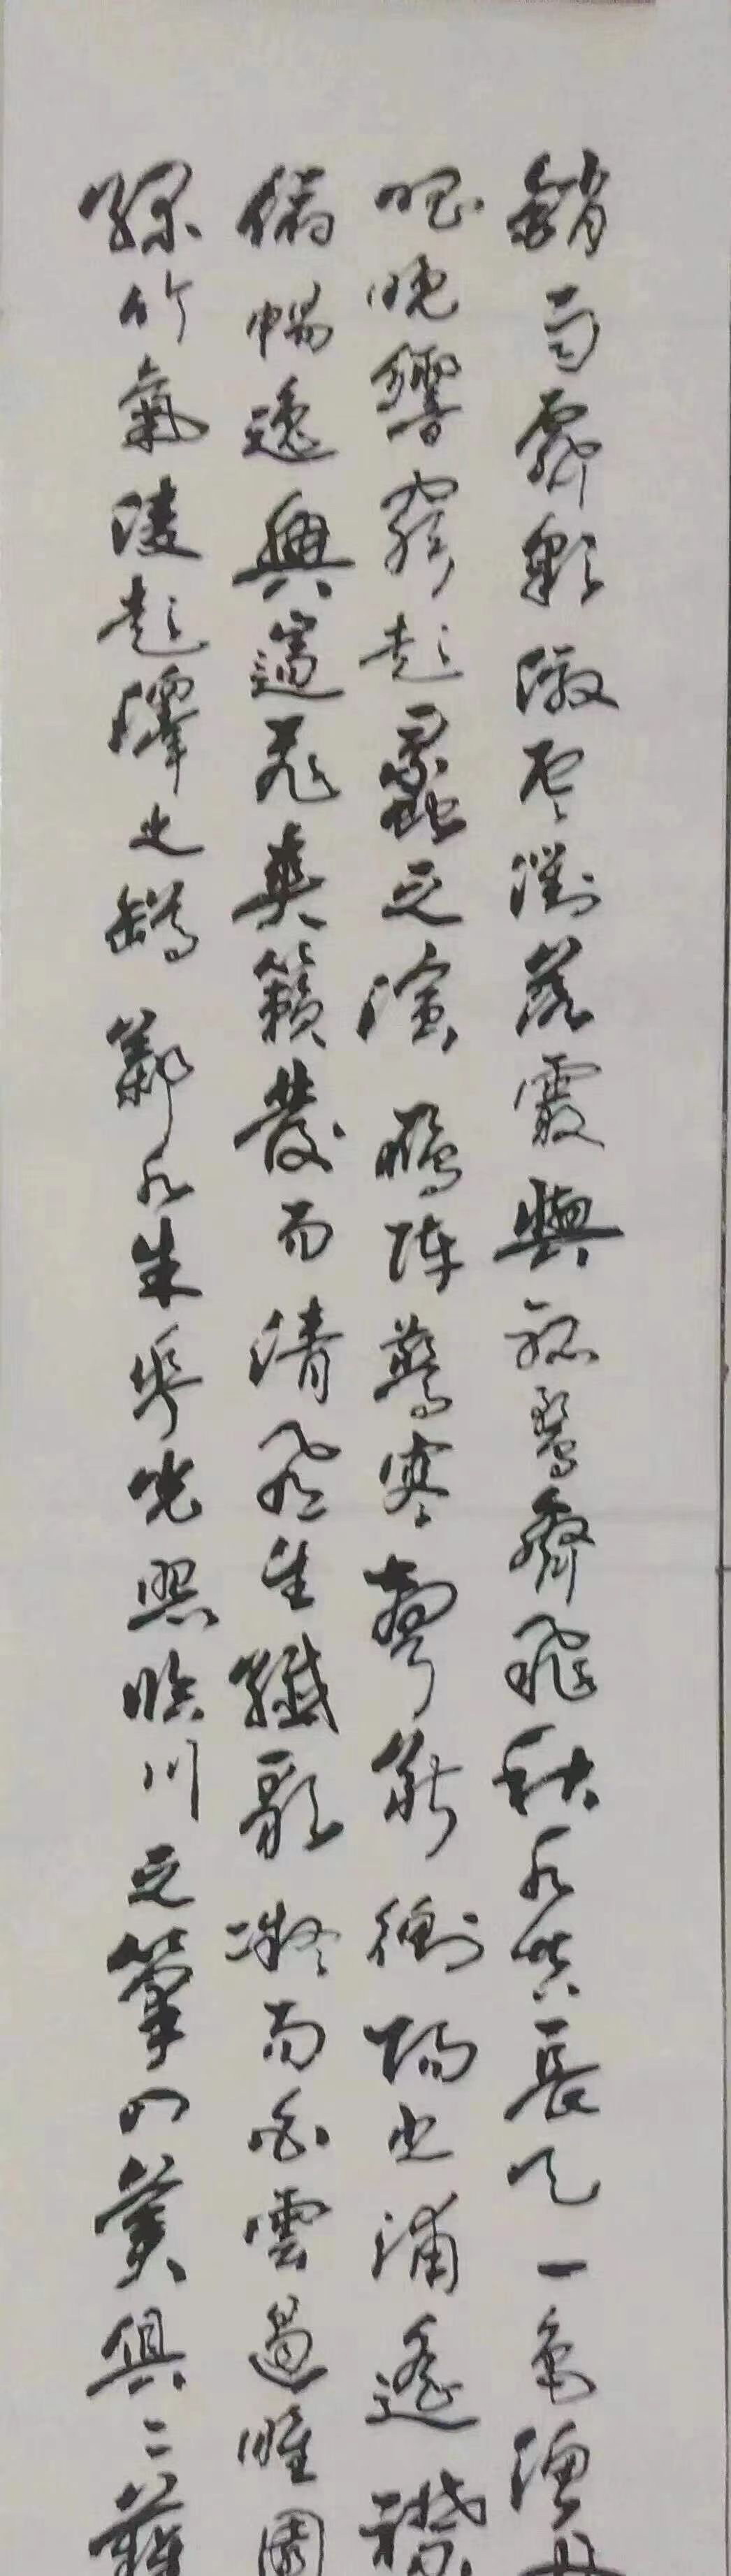 銷雨霽彩徹雲衢落霞與孤鶩齊飛秋水共長天一色漁舟
唱晚響窮彭蠡之濱鴈陣驚寒聲斷衡陽之浦遙襟
俯暢逸興遄飛爽籟發而清風生纖歌凝而白雲遏睢園
綠竹氣凌彭澤之樽鄴水朱華光照臨川之筆四美俱二難